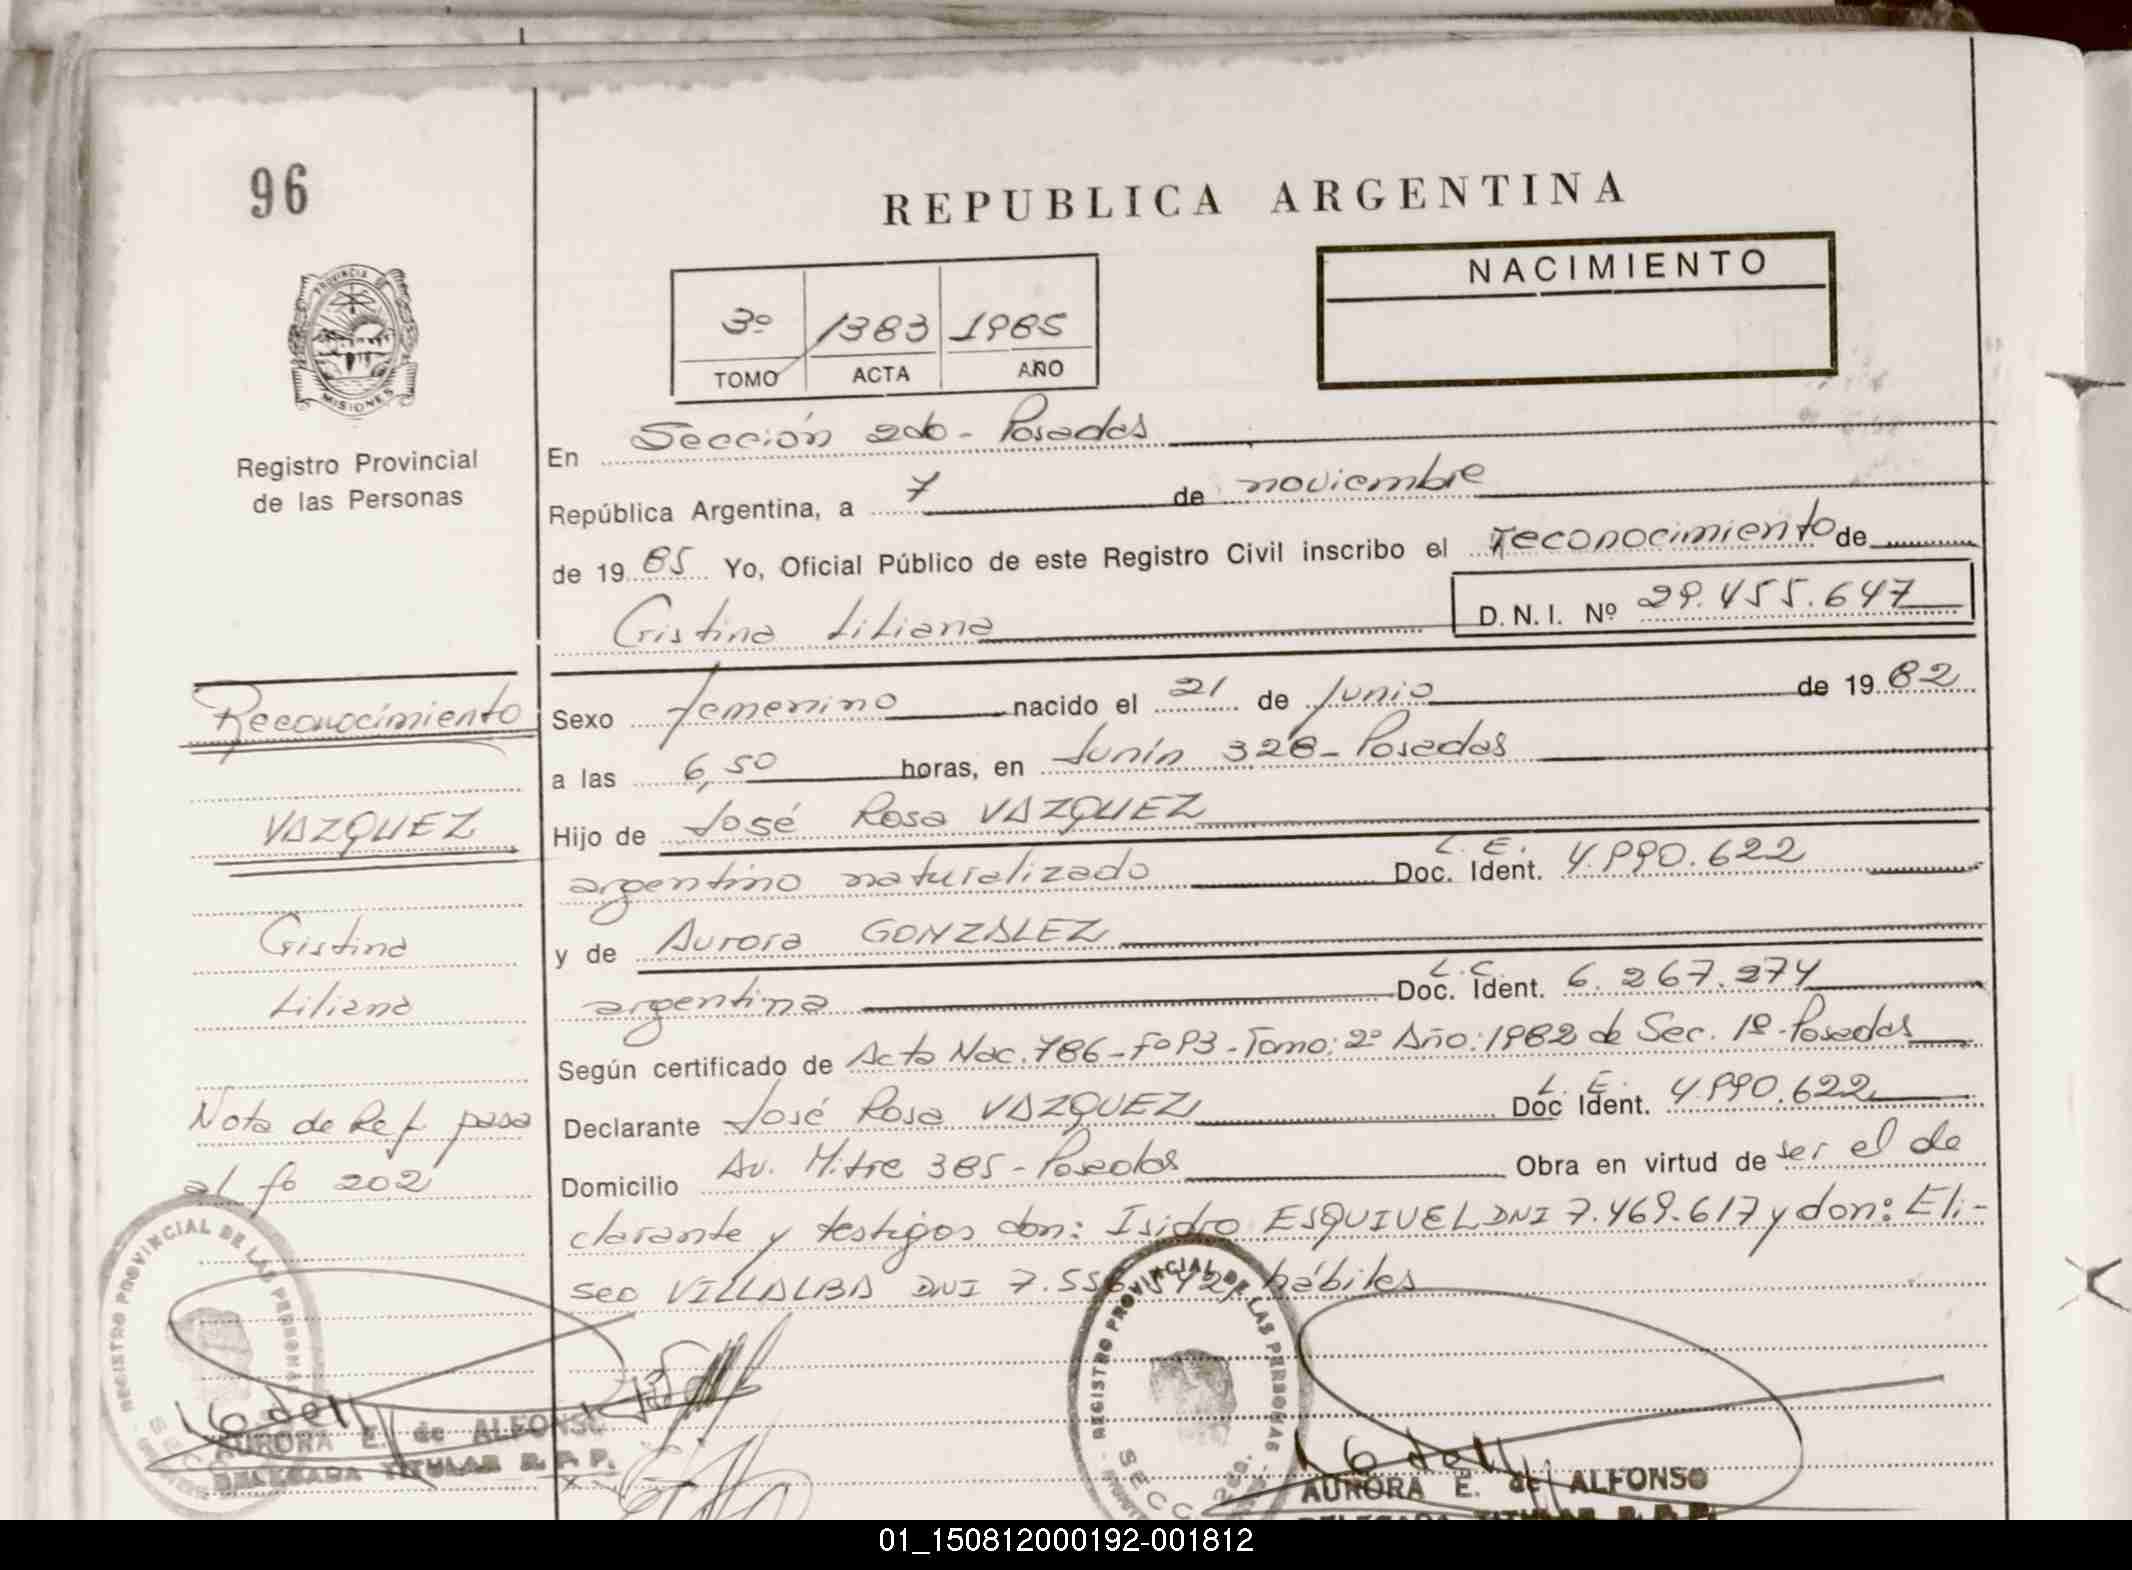 96
REPUBLICA ARGENTINA
NACIMIENTO
3º 1383 1985
TOMO ACTA AÑO
PROVINCIA DE
MISIONES
Registro Provincial
de las Personas
En Sección 2da - Posadas
República Argentina, a 7 de noviembre
de 1985 Yo, Oficial Público de este Registro Civil inscribo el reconocimiento de
Cristina Liliana D.N.I. Nº 29.455.647
Sexo femenino nacido el 21 de Junio de 1982
a las 6,50 horas, en Junín 328 - Posadas
Hijo de José Rosa VAZQUEZ
argentino naturalizado L.E. Doc. Ident. 4.990.622
y de Aurora GONZALEZ
argentina L.C. Doc. Ident. 6.267.274
Según certificado de Acta Nac. 786 - Fº 93 - Tomo: 2º Año: 1982 de Sec. 1º - Posadas
Declarante José Rosa VAZQUEZ L.E. Doc Ident. 4.990.622
Domicilio Av. Mitre 385 - Posadas Obra en virtud de ser el de
clarante y testigos don: Isidro ESQUIVEL DNI 7.469.617 y don: Eli-
seo VILLALBA DNI 7.556. hábiles
Reconocimiento
VAZQUEZ
Cristina
Liliana
Nota de Ref pasa
al fo 202
REGISTRO PROVINCIAL DE LAS PERSONAS
AURORA E. de ALFONSO
DELEGADA TITULAR R. P. P.
REGISTRO PROVINCIAL DE LAS PERSONAS
SECC. 2da.
AURORA E. de ALFONSO
DELEGADA TITULAR R. P. P.
01_150812000192-001812